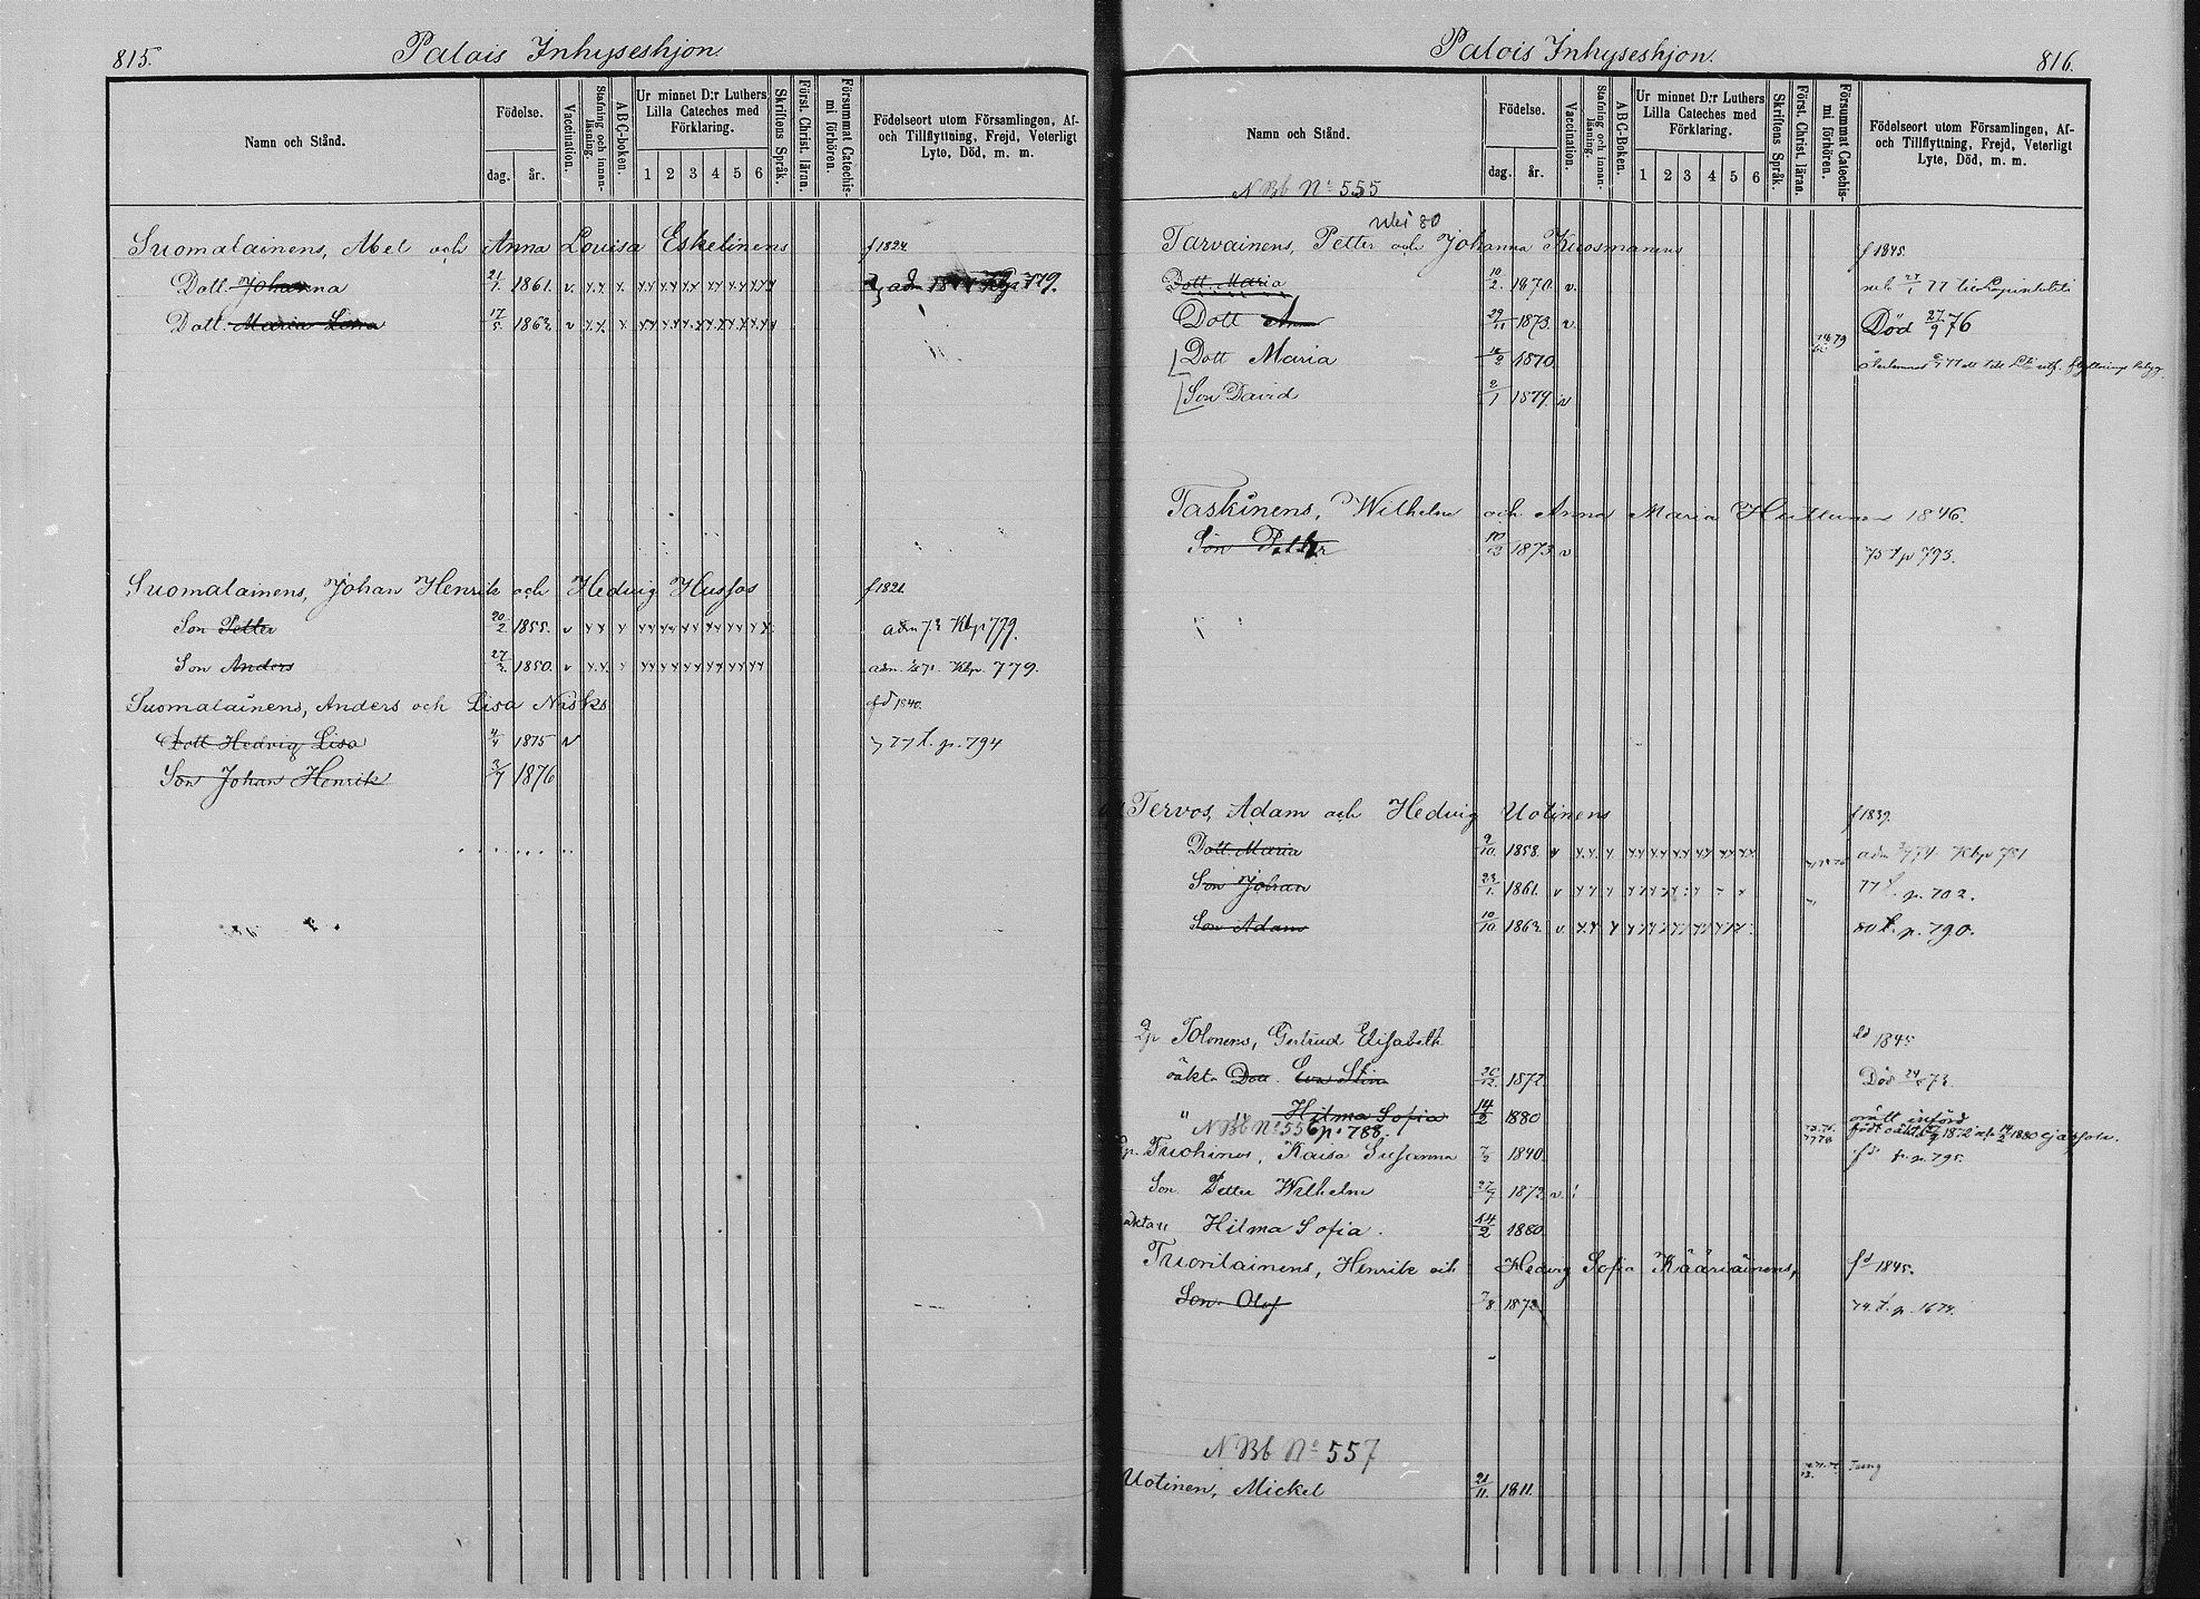 815.
Palois Inhyseshjon.
Namn och Stånd.
Födelse.
dag.
år.
Vaccination.
Stafning och innan-
läsning.
ABC-boken.
Ur minnet D:r Luthers
Lilla Cateches med
Förklaring.
1 2 3 4 5 6
Skriftens Språk.
Först. Christ. läran.
Försummat Catechis-
mi förhören.
Födelseort utom Församlingen, Af-
och Tillflyttning, Frejd, Veterligt
Lyte, Död, m. m.
Suomalainens, Abel och Anna Lovisa Eskelinens f 1824
Dott. Johanna 21/1. 1861. v. 779.
Dott. Maria 17/5. 1862 v
Suomalainens, Johan Henrik och Hedvig Hussos f 1821
Son Petter 20/2 1855. v adm 73 Kbp 779.
Son Anders 27/2. 1850. v adm. Kbp. 779.
Suomalainens, Anders och Lisa Nisks fd 1840.
Dott Hedvig Lisa 4/4 1875 v 77 t. p. 794
Son Johan Henrik 3/7 1876
816.
Palois Inhyseshjon.
Namn och Stånd.
Födelse.
dag.
år.
Vaccination.
Stafning och innan-
läsning.
ABC-Boken.
Ur minnet D:r Luthers
Lilla Cateches med
Förklaring.
1 2 3 4 5 6
Skriftens Språk.
Först. Christ. läran.
Försummat Catechis-
mi förhören.
Födelseort utom Församlingen, Af-
och Tillflyttning, Frejd, Veterligt
Lyte, Död, m. m.
N Bb No 555
80
Tarvainens, Petter och Johanna Kuosmanens f 1845.
Dott. Maria 10/2. 1870. v. 77
Dott Anna 29/11 1873. v. Död 27/9 76
Dott Maria 1870.
Son David 2/1 1879. v
Taskinens, Wilhelm och Anna Maria 1846.
Son Petter 10/12 1873 v 75 t p 793.
Tervos, Adam och Hedvig Uotinens f 1839.
Dott. Maria 9/10. 1858. v adm 74 Kbp 781
Son Johan 23/1. 1861. v 77 t. p. 702.
Son Adam 10/10 1862. v. 80 t. p. 790.
Tolonens, Gertrud Elisabeth fd 1845
oäkta Dott. Eva Stina 1872 Död 73.
" Hilma Sofia 14/2 1880 orätt införd
N Bb No 556 p. 788.
Tuohinos, Kaisa Susanna 1840.
Son Petter Wilhelm 27/7 1872 v.
Hilma Sofia. 14/2 1880
Tuorilainens, Henrik och Hedvig Sofia Kääriäinens, fd 1845.
Son Olof 7/8. 1872 74. t. p. 1674.
N Bb No 557
Uotinen, Mickel 21/11. 1811.